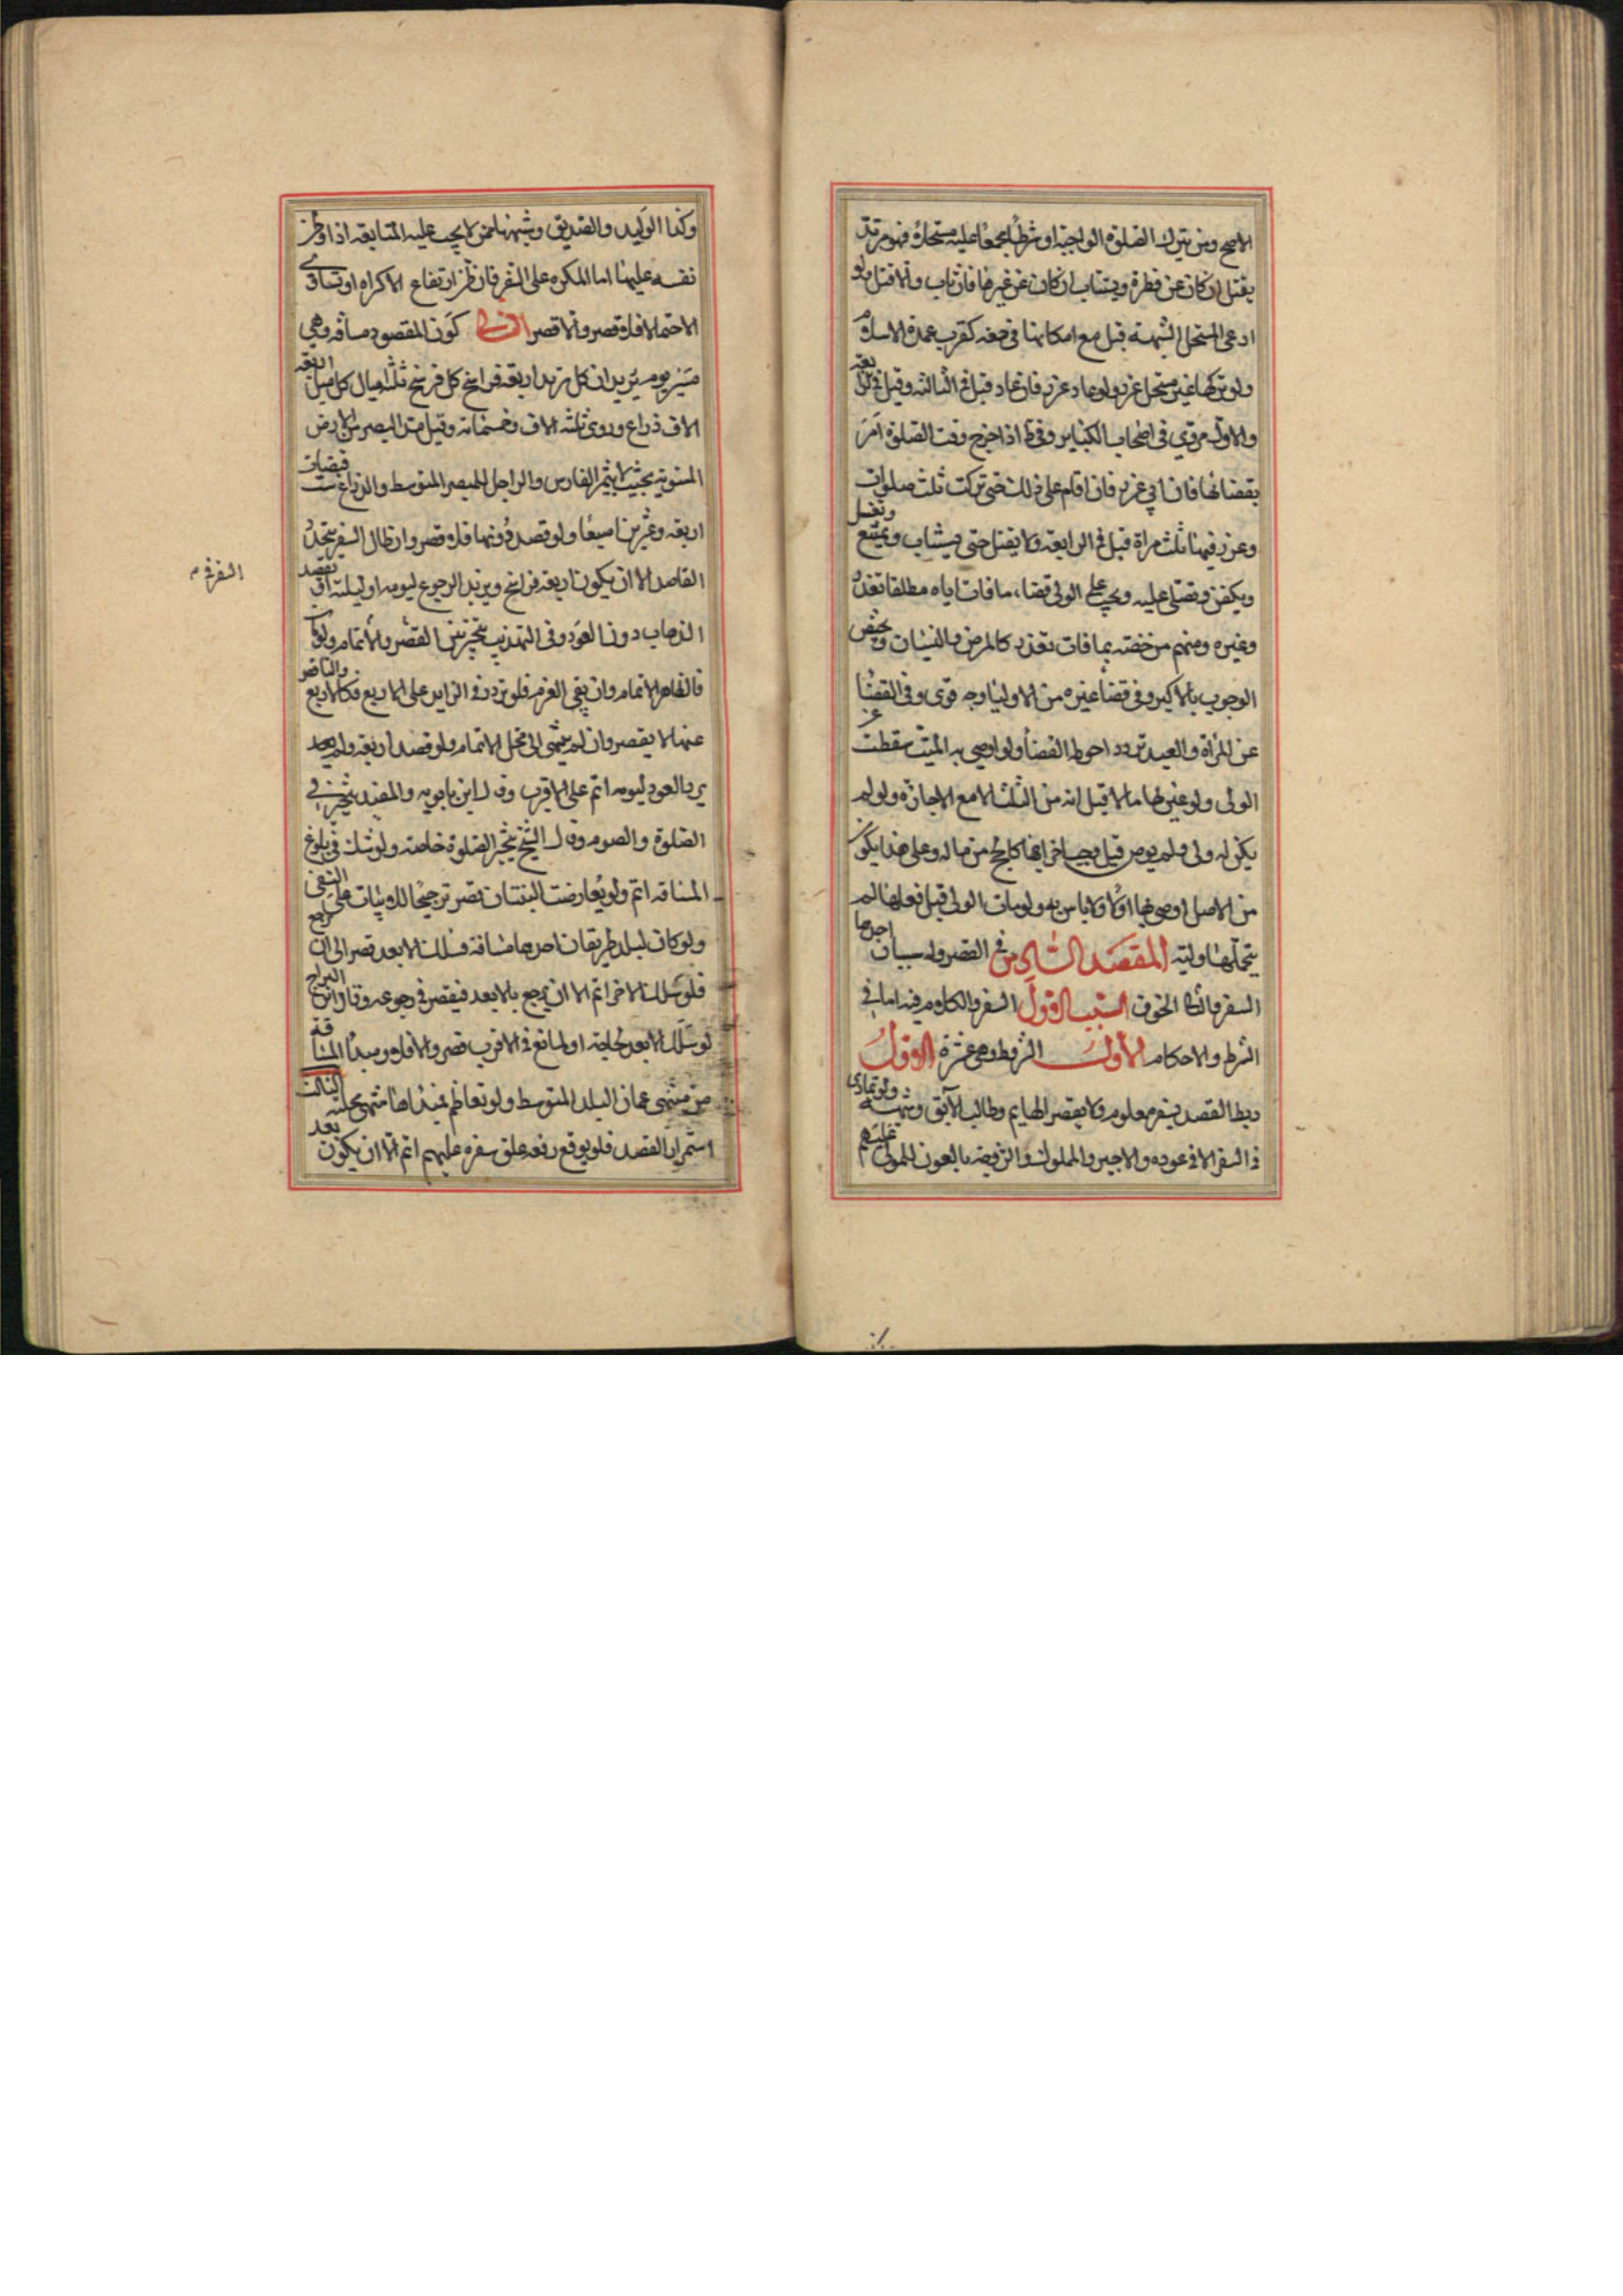 الاصح ومن يترك الصلوة الواجبة او شرطا مجمعا عليه مستحلا فهو مرتد
يقتل ان كان عن فطرة ويستتاب ان كان عن غيرها فان تاب والا قتل ولو
ادعى المستحل الشبهة قبل مع امكانها فى حقه كقرب عهده الاسلام
ولو تركها غير مستحل عزر ولو عاد عزر فان عاد قتل فى الثالثة وقيل فى الرابعة
والاول مروى فى اصحاب الكباير وفى ط اذا خرج وقت الصلوة امر
بقضائها فان ابى عزر فان اقام على ذلك حتى تركت ثلث صلوات
وعزر فيها ثلث مراة قتل فى الرابعة ولا يقتل حتى يستتاب ويمتنع ويغسل
ويكفن ويصلى عليه ويجب على الولى قضاء ما فات اباه مطلقا تعذر
وغيره ومنهم من خصه بما فات بعذر كالمرض والنسيان ويختص
الوجوب بالاكبر وفى قضاء غيره من الاوليا وجه قوى وفى القضا
عن المراة والعبد تردد احوط القضا ولو اوصى به الميت سقطت عن
الولى ولو عين لها مالا قيل انه من الثلث الا مع الاجازة ولو لم
يكن له ولى ولم يوص قيل يجب اخراجها كالحج من ماله وعلى هذا يكون
من الاصل اوصى بها اولا ولا باس به ولو مات الولى قبل فعلها لم
يتحملها وليه المقصد الثامن فى القصر وله سببان احدها
السفر والثانى الخوف السبب الاول السفر والكلام فيه اما فى
الشرط والاحكام الاول الشروط وهى عشرة الاول
ربط القصد بسفر معلوم فلا يقصر الهايم وطالب الآبق وشبهه ولو تمادى
فى السفر الا فى عوده والاجير والمملوك والزوجة تابعون للمولى عليهم
وكذا الوليد والصديق وشبهها ممن لا يجب عليه المتابعة اذا وطن
نفسه عليها اما المكره على السفر فان ظن ارتفاع الاكراه او تساوى
الاحتمالا فلا قصر والا قصر الثانى كون المقصود مسافة وهى
مسير يوم بريدان كل بريد اربعة فراسخ كل فرسخ ثلثة اميال كل ميل اربعة
الاف ذراع وروى ثلثة الاف وخمسمائة وقيل مد البصر من الارض
المستوية بحيث لا يتميز الفارس والراجل للمبصر المتوسط والذراع ست قبضات
اربعة وعشرين اصبعا ولو قصد دونها فلا قصر وان طال السفر بتجدد
القاصد الا ان يكون اربعة فراسخ ويريد الرجوع ليومه او ليلته او بقصد
السفر فى م
الذهاب دون العود وفى التهذيب يتخير بين القصر والاتمام ولو
فالظاهر الاتمام وان بقى العزم فلو تردد فى الزايد على الاربع فكالاربع والناقص
عنها لا يقصر وان لم ينتهى الى محل الاتمام ولو قصد اربعة ولم
يرد العود ليومه اتم على الاقرب وقال ابن بابويه والمفيد يتخير فى
الصلوة والصوم وقال الشيخ يتخير الصلوة خاصة ولو شك فى بلوغ
المسافة اتم ولو تعارضت البينتان قصر ترجيحا للاثبات على النفى
ولو كان لبلد طريقان احدها مسافة فسلك الابعد قصر الى ان يرجع
فلو سلك الاخر اتم الا ان يرجع بالابعد فيقصر فى رجوعه وقال ابن البراج
لو سلك الابعد لحاجة او لمانع فى الاقرب قصر والا فلا ومبدا المسافة
من منتهى عمارة البلد المتوسط ولو تعاظم فمبداها منتهى محلته الثالث
استمرار القصد فلو توقع رفقة علق سفره عليهم اتم الا ان يكون بعد